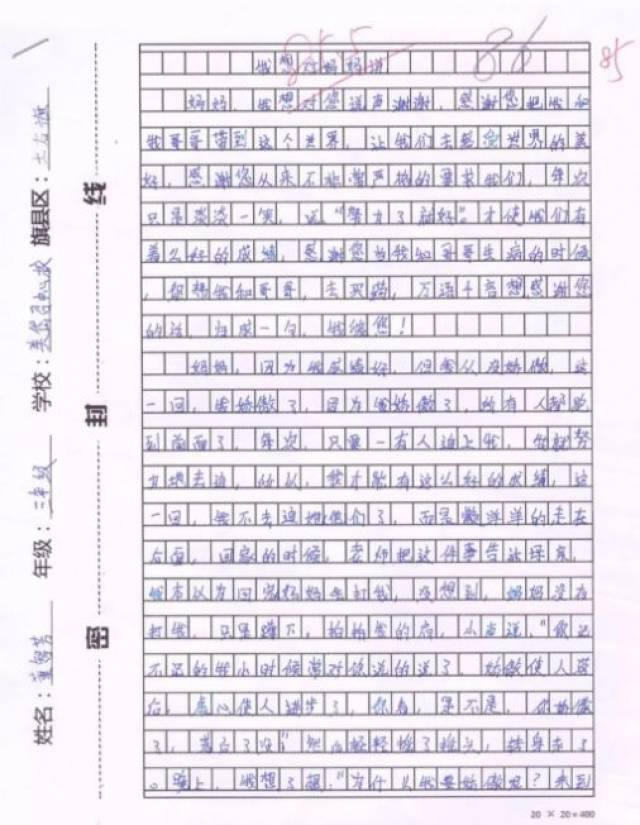 85.5
86
85
我想对妈妈说
妈妈，我想对您说声谢谢，感谢您把我和
我哥哥带到这个世界，让我们去感受世界的美
好，感谢您从来不非常严格的要求我们，每次
只是淡淡一笑，说“努力了就好”。才使我们有
着么好的成绩，感谢您当我和哥哥生病的时候
，您帮我和哥哥，去买药，万语千言想感谢您
的话，归成一句，我爱您！
妈妈，因为我成绩好，但我从没娇傲，这
一回，我娇傲了，因为我娇傲了，所有人都跑
到前面了，每次，只要一有人追上我，我就努
力地去追，所以，我才能有这么好的成绩，这
一回，我不去追她们了，而是懒洋洋的走在
后面，回家的时候，老师把这件事告诉
我本以为回家妈妈会打我，没想到，妈妈没有
打我，只是蹲下，拍拍我的肩，小声说，“你记
不记的我小时候常对你说的送了，娇傲使人落
后，虚心使人进步了，你看，是不是，你娇傲
了，落后了没”然后轻轻摇了摇头，转身走了
。晚上，我想了想，“为什么我要娇傲呢？来到
20 × 20 = 400
旗县区：土右旗
学校：
年级：三年级
姓名：董
密 封 线